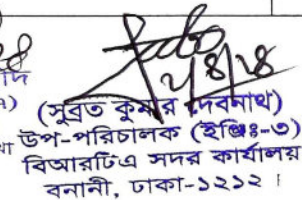 দ
৭) (সুব্রত কুমার দেবনাথ)
খা উপ-পরিচালক (ইঞ্জিঃ-৩)
বিআরটিএ সদর কার্যালয়
বনানী, ঢাকা-১২১২।